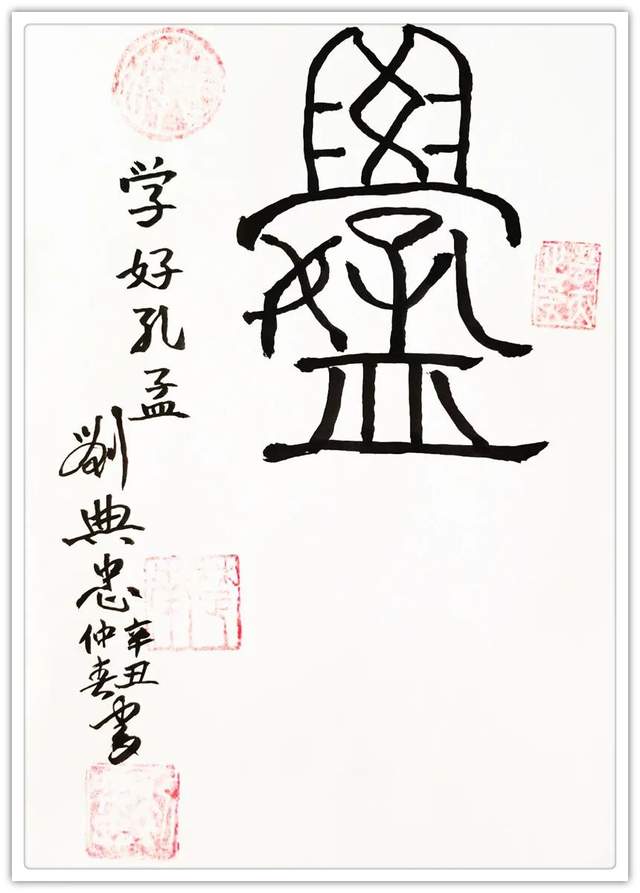 学好孔孟
劉典忠
辛丑
仲春
書